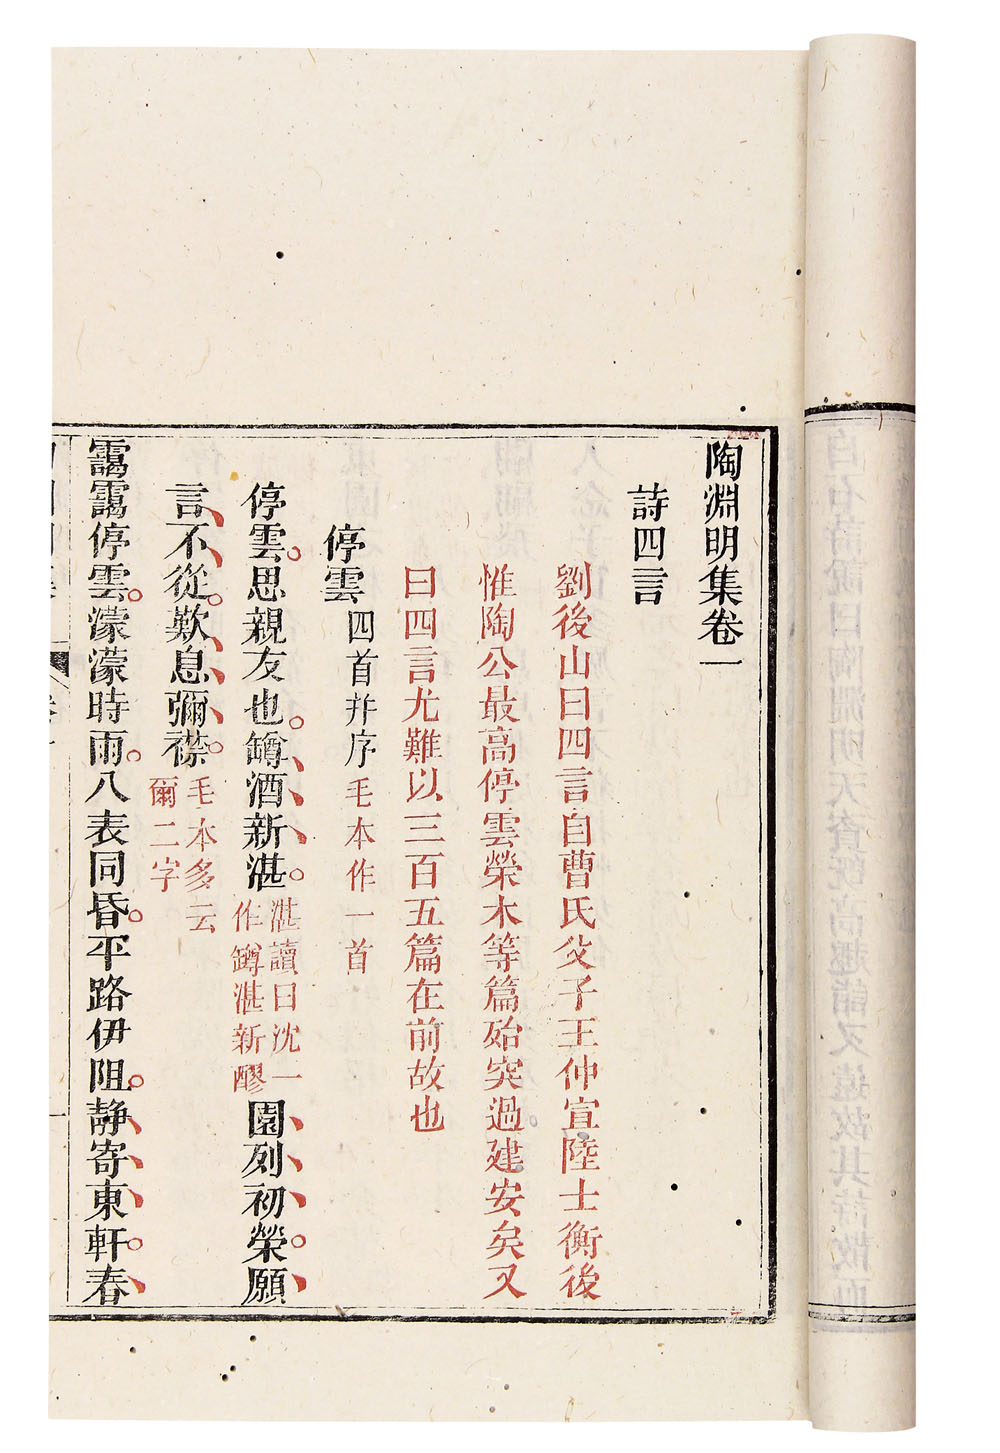 陶淵明集卷一
詩四言
劉後山曰四言自曹氏父子王仲宣陸士衡後
惟陶公最高停雲榮木等篇殆突過建安矣又
曰四言尤難以三百五篇在前故也
停雲四首并序毛本作一首
停雲思親友也罇酒新湛湛讀曰沈一作罇湛新醪園列初榮願
言不從歎息彌襟毛本多云爾二字
靄靄停雲濛濛時雨八表同昏平路伊阻靜寄東軒春